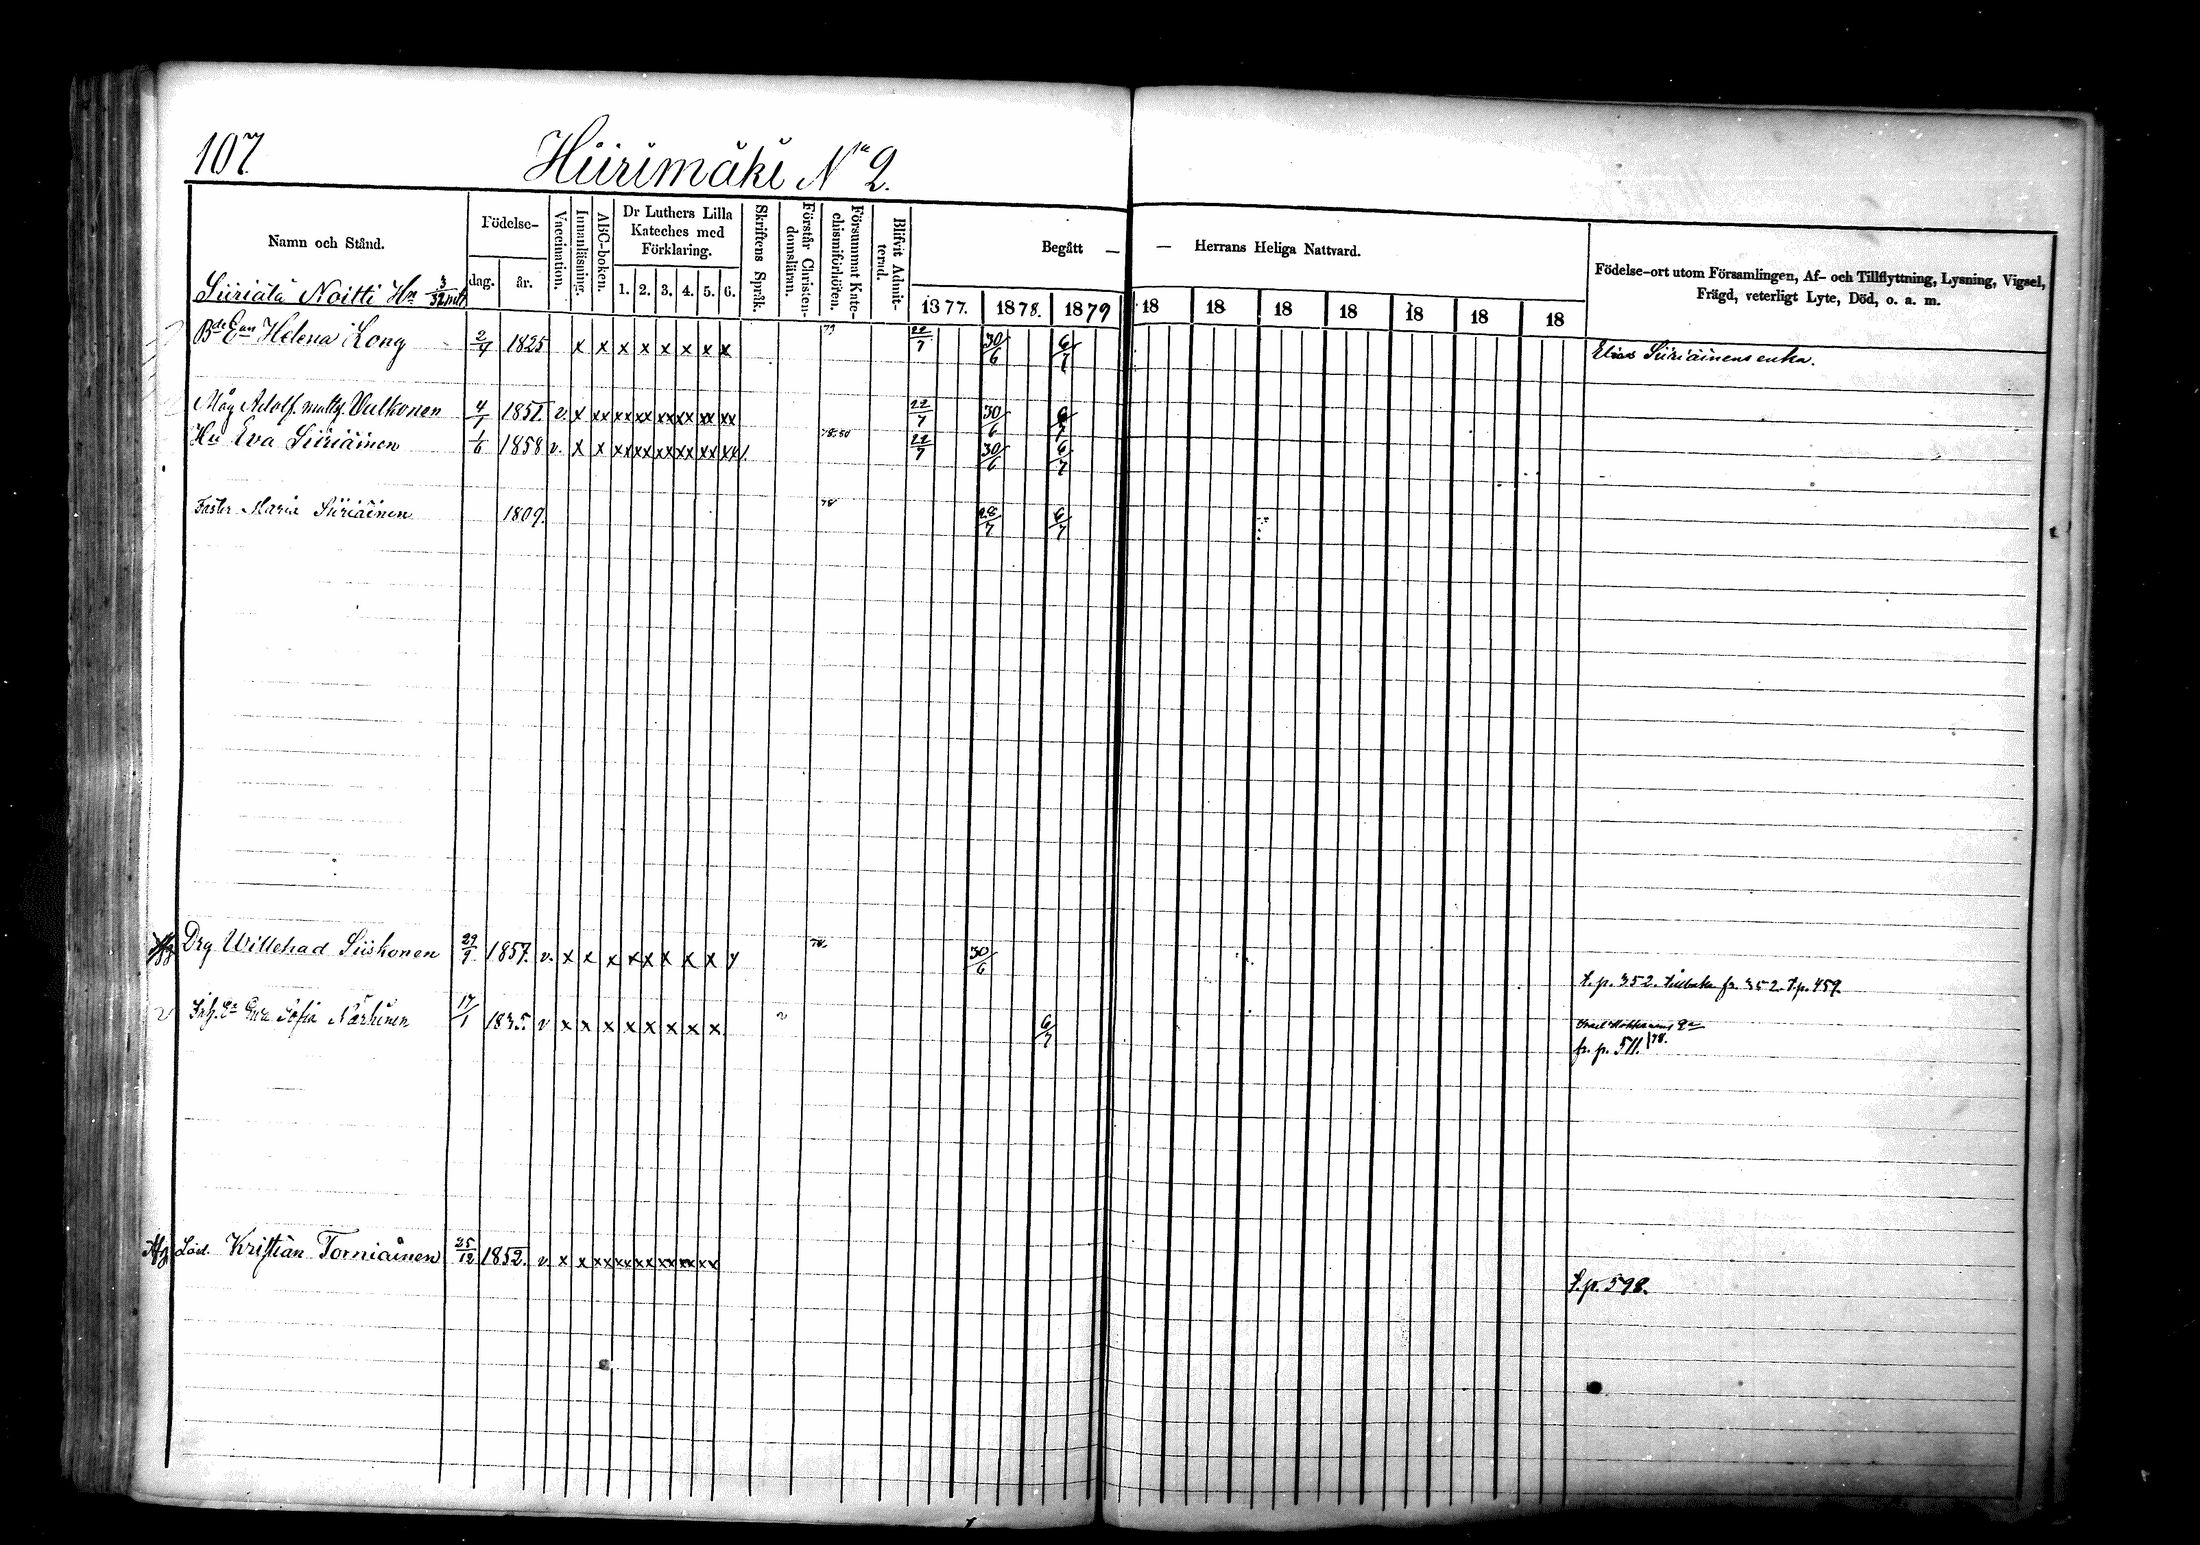 107.
Hiirimäki No 2.
Namn och Stånd.
Födelse-
dag.
år.
Vaccination.
Innanläsning.
ABC-boken.
Dr Luthers Lilla
Kateches med
Förklaring.
1. 2. 3. 4. 5. 6.
Skriftens Språk.
Förstår Christen-
domsläran.
Försummat Kate-
chismiförhören.
Blifvit Admit-
terad.
Begått — — Herrans Heliga Nattvard.
1877. 1878. 1879 18 18 18 18 18 18 18
Födelse-ort utom Församlingen, Af- och Tillflyttning, Lysning, Vigsel,
Frägd, veterligt Lyte, Död, o. a. m.
Siiriälä Noitti Hn 3/32 mtl
Bde Enn Helena Kong 2/4 1825 x x x x x x x x 79 22/7 30/6 6/7 Elias Siiriäinens enka.
Måg Adolf Vulkonen 4/1 1851. v. x xx xx xx xx xx xx xx 22/7 30/6 6/7
Hu Eva Siiriäinen 1/6 1858 v. x x xx xx xx xx xx xx 78.80 22/7 30/6 6/7
Faster Maria Siiriäinen 1809. 78 28/7 6/7
Drg Willehad Siiskonen 29/9 1857. v. x x x xx x x x x 78. 30/6
t. p. 352. fr 352. T.p. 459.
Inh. Ea Eva Sofia Närhinen 17/1 1835. v x x x x x x x x 6/7
fr. p. 511. /78.
Kristian Torniainen 25/12 1852. v. x x xx xx xx xx xx xx
T.p. 598.